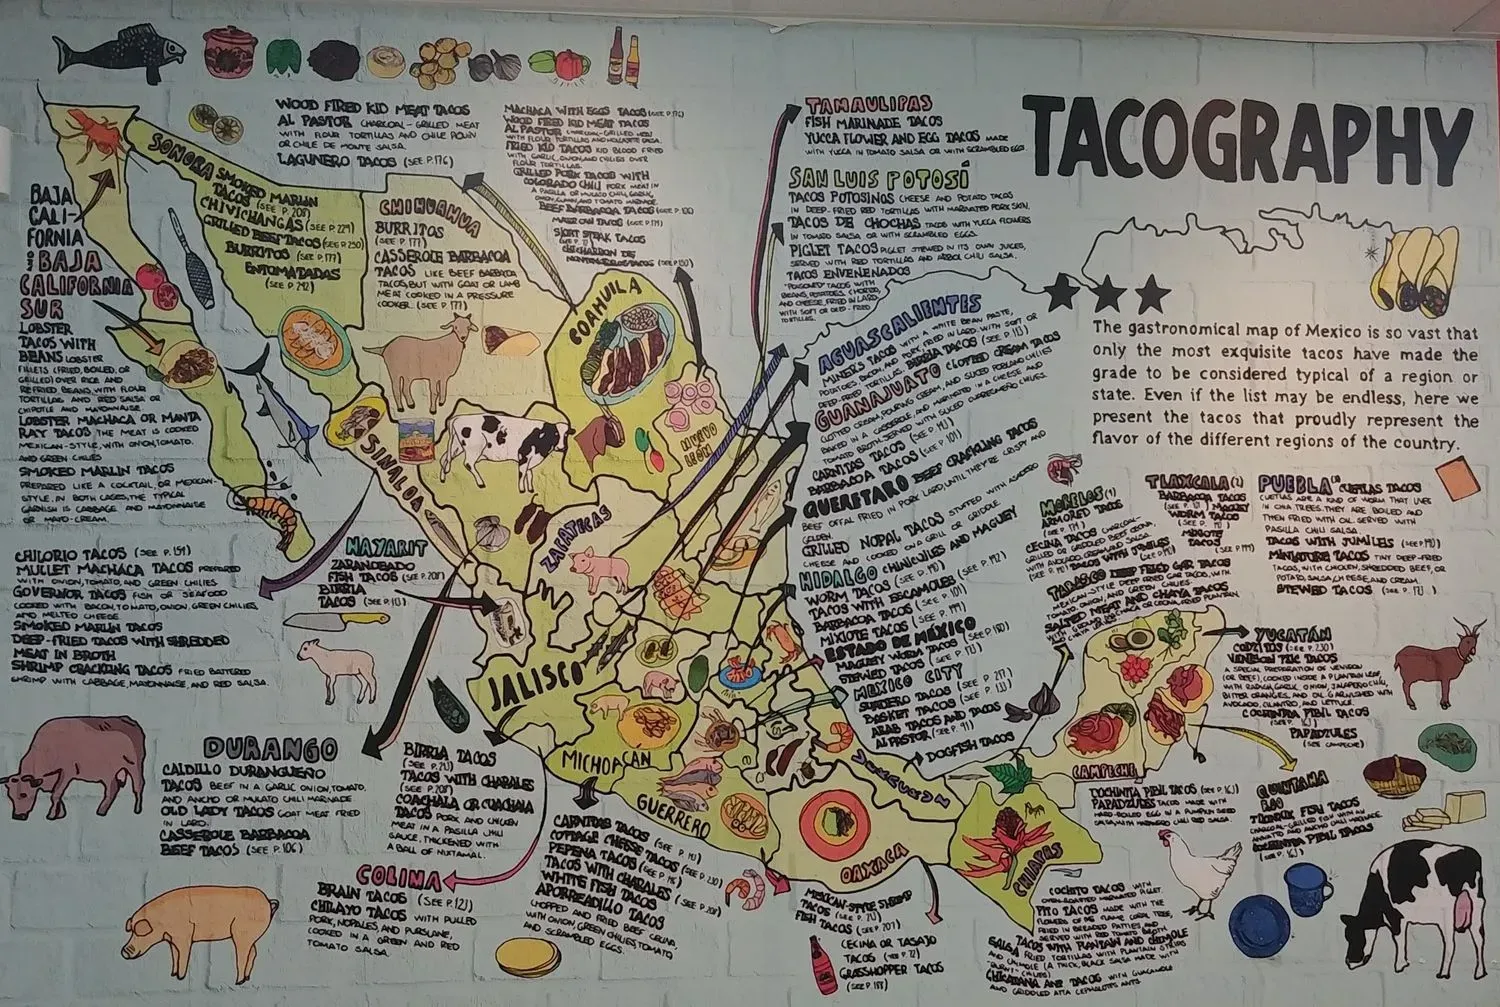 TACOGRAPHY
The gastronomical map of Mexico is so vast that
only the most exquisite tacos have made the
grade to be considered typical of a region or
state. Even if the list may be endless, here we
present the tacos that proudly represent the
flavor of the different regions of the country.
WOOD FIRED KID MEAT TACOS
AL PASTOR CHARCOAL-GRILLED MEAT
WITH FLOUR TORTILLAS AND CHILE
OR CHILE DE MONTE SALSA.
LAGUNERO TACOS (SEE P.176)
MACHACA WITH EGGS TACOS
WOOD FIRED KID MEAT TACOS
AL PASTOR CHARCOAL-GRILLED MEAT
FRIED KID TACOS KID BLOOD FRIED
WITH GARLIC, ONION AND CHILIES OVER
FLOUR TORTILLAS.
GRILLED PORK TACOS WITH
COLORADO CHILI PORK MEAT IN
BEEF BARBACOA TACOS
TACOS
TAMAULIPAS
FISH MARINADE TACOS
YUCCA FLOWER AND EGG TACOS MADE
WITH YUCCA IN TOMATO SALSA OR WITH SCRAMBLED EGGS.
SAN LUIS POTOSÍ
TACOS POTOSINOS CHEESE AND POTATO TACOS
IN DEEP-FRIED RED TORTILLAS WITH MARINATED PORK SKIN.
TACOS DE CHOCHAS TACOS WITH YUCCA FLOWERS
IN TOMATO SALSA OR WITH SCRAMBLED EGGS.
PIGLET TACOS PIGLET STEWED IN ITS OWN JUICES,
SERVED WITH RED TORTILLAS AND ARBOL CHILI SALSA.
TACOS ENVENENADOS
"POISONED" TACOS WITH
BEANS, POTATOES, CHORIZO,
AND CHEESE, FRIED IN LARD,
WITH SOFT OR DEEP-FRIED
TORTILLAS.
BAJA
CALI-
FORNIA
BAJA
CALIFORNIA
SUR
LOBSTER
TACOS WITH
BEANS LOBSTER
FILLETS (FRIED, BOILED, OR
GRILLED) OVER RICE AND
REFRIED BEANS WITH FLOUR
TORTILLAS AND RED SALSA OR
CHIPOTLE AND MAYONNAISE.
LOBSTER MACHACA OR MANTA
RAY TACOS THE MEAT IS COOKED
MEXICAN-STYLE, WITH ONION, TOMATO,
AND GREEN CHILIES
SMOKED MARLIN TACOS
PREPARED LIKE A COCKTAIL, OR MEXICAN-
STYLE. IN BOTH CASES, THE TYPICAL
GARNISH IS CABBAGE AND MAYONNAISE
OR MAYO-CREAM.
SONORA
SMOKED MARLIN
TACOS (SEE P. 208)
CHIVICHANGAS (SEE P. 229)
GRILLED BEEF TACOS (SEE P. 250)
BURRITOS (SEE P. 177)
ENTOMATADAS
(SEE P. 242)
CHIHUAHUA
BURRITOS
(SEE P. 177)
CASSEROLE BARBACOA
TACOS LIKE BEEF BARBACOA
TACOS, BUT WITH GOAT OR LAMB
MEAT COOKED IN A PRESSURE
COOKER. (SEE P. 177)
COAHUILA
NUEVO
LEÓN
SINALOA
CHILORIO TACOS (SEE P. 159)
MULLET MACHACA TACOS PREPARED
WITH ONION, TOMATO, AND GREEN CHILIES
GOVERNOR TACOS FISH OR SEAFOOD
COOKED WITH BACON, TOMATO, ONION, GREEN CHILIES,
AND MELTED CHEESE
SMOKED MARLIN TACOS
DEEP-FRIED TACOS WITH SHREDDED
MEAT IN BROTH
SHRIMP CRACKLING TACOS FRIED BATTERED
SHRIMP WITH CABBAGE, MAYONNAISE, AND RED SALSA.
NAYARIT
ZARANDEADO
FISH TACOS (SEE P. 208)
BIRRIA
TACOS (SEE P. 113)
ZACATECAS
JALISCO
AGUASCALIENTES
MINER'S TACOS
BIRRIA TACOS (SEE P. 113)
GUANAJUATO CLOTTED CREAM TACOS
CARNITAS TACOS (SEE P. 141)
BARBACOA TACOS (SEE P. 101)
QUERETARO BEEF CRACKLING TACOS
BEEF OFFAL FRIED IN PORK LARD UNTIL THEY'RE CRISPY AND
GOLDEN
GRILLED NOPAL TACOS STUFFED WITH
CHEESE AND COOKED ON A GRILL OR GRIDDLE
HIDALGO CHINICUILES AND MAGUEY
WORM TACOS (SEE P. 191)
TACOS WITH ESCAMOLES (SEE P. 192)
BARBACOA TACOS (SEE P. 101)
MIXIOTE TACOS (SEE P. 199)
ESTADO DE MÉXICO
MAGUEY WORM TACOS (SEE P. 190)
STEWED TACOS (SEE P. 173)
MEXICO CITY
SUADERO TACOS (SEE P. 217)
BASKET TACOS (SEE P. 133)
ARAB TACOS AND TACOS
AL PASTOR (SEE P. 91)
DOGFISH TACOS
MORELOS
ARMORED TACOS
CECINA TACOS
TACOS WITH JUMILES
TABASCO DEEP FRIED GAR TACOS
SALTED MEAT AND CHAYA TACOS
TLAXCALA
BARBACOA TACOS
MAGUEY
WORM TACOS
MIXIOTE
TACOS
PUEBLA CUETLAS TACOS
CUETLAS ARE A KIND OF WORM THAT LIVES
IN CHIA TREES. THEY ARE BOILED AND
THEN FRIED WITH OIL. SERVED WITH
PASILLA CHILI SALSA.
TACOS WITH JUMILES
MINIATURE TACOS TINY DEEP-FRIED
TACOS, WITH CHICKEN, SHREDDED BEEF, OR
POTATO, SALSA, CHEESE, AND CREAM.
STEWED TACOS (SEE P. 173)
YUCATÁN
CODZITOS (SEE P. 230)
VENISON PIBIL TACOS
A SPECIAL PREPARATION OF VENISON
(OR BEEF), COOKED INSIDE A PLANTAIN LEAF,
WITH RADISH, GARLIC, ONION, JALAPEÑO CHILI,
BITTER ORANGES, AND OIL. GARNISHED WITH
AVOCADO, CILANTRO, AND LETTUCE.
COCHINITA PIBIL TACOS
(SEE P. 163)
PAPADZULES
(SEE CAMPECHE)
CAMPECHE
COCHINITA PIBIL TACOS (SEE P. 163)
PAPADZULES TACOS MADE WITH
HARD-BOILED EGG IN A PUMPKIN SEED
SALSA, WITH HABANERO CHILI RED SALSA.
QUINTANA
ROO
FISH TACOS
CHARCOAL-GRILLED FISH WITH AN
COCHINITA PIBIL TACOS
(SEE P. 163)
DURANGO
CALDILLO DURANGUEÑO
TACOS BEEF IN A GARLIC, ONION, TOMATO,
AND ANCHO OR MULATO CHILI MARINADE
OLD LADY TACOS GOAT MEAT FRIED
IN LARD.
CASSEROLE BARBACOA
BEEF TACOS (SEE P. 106)
BIRRIA TACOS
(SEE P. 213)
TACOS WITH CHARALES
(SEE P. 208)
COACHALA OR CUACHALA
TACOS PORK AND CHICKEN
MEAT IN A PASILLA CHILI
SAUCE, THICKENED WITH
A BALL OF NIXTAMAL.
COLIMA
BRAIN TACOS (SEE P. 123)
CHILAYO TACOS WITH PULLED
PORK, NOPALES, AND PURSLANE,
COOKED IN A GREEN AND RED
TOMATO SALSA.
MICHOACAN
CARNITAS TACOS (SEE P. 141)
COTTAGE CHEESE TACOS (SEE P. 230)
PEPENA TACOS
TACOS WITH CHARALES (SEE P. 208)
WHITE FISH TACOS
APORREADILLO TACOS
CHOPPED AND FRIED BEEF CECINA,
WITH ONION, GREEN CHILIES, TOMATO,
AND SCRAMBLED EGGS.
GUERRERO
MEXICAN-STYLE SHRIMP
TACOS
FISH TACOS (SEE P. 207)
OAXACA
CECINA OR TASAJO
TACOS
GRASSHOPPER TACOS
(SEE P. 188)
VERACRUZ
CHIAPAS
COCHITO TACOS WITH
OVEN-ROASTED MARINATED PIGLET.
PITO TACOS MADE WITH THE
FLOWERS OF THE FLAME CORAL TREE,
FRIED IN BREADED PATTIES, AND
SERVED WITH RED TOMATO BROTH.
TACOS WITH PLANTAIN AND CHIMOLE
SALSA FRIED TORTILLAS WITH PLANTAIN STRIPS
AND CHIMOLE (A THICK, BLACK SALSA MADE WITH
CHICATANA ANT TACOS WITH GUACAMOLE
AND GRIDDLED ATTA CEPHALOTES ANTS.